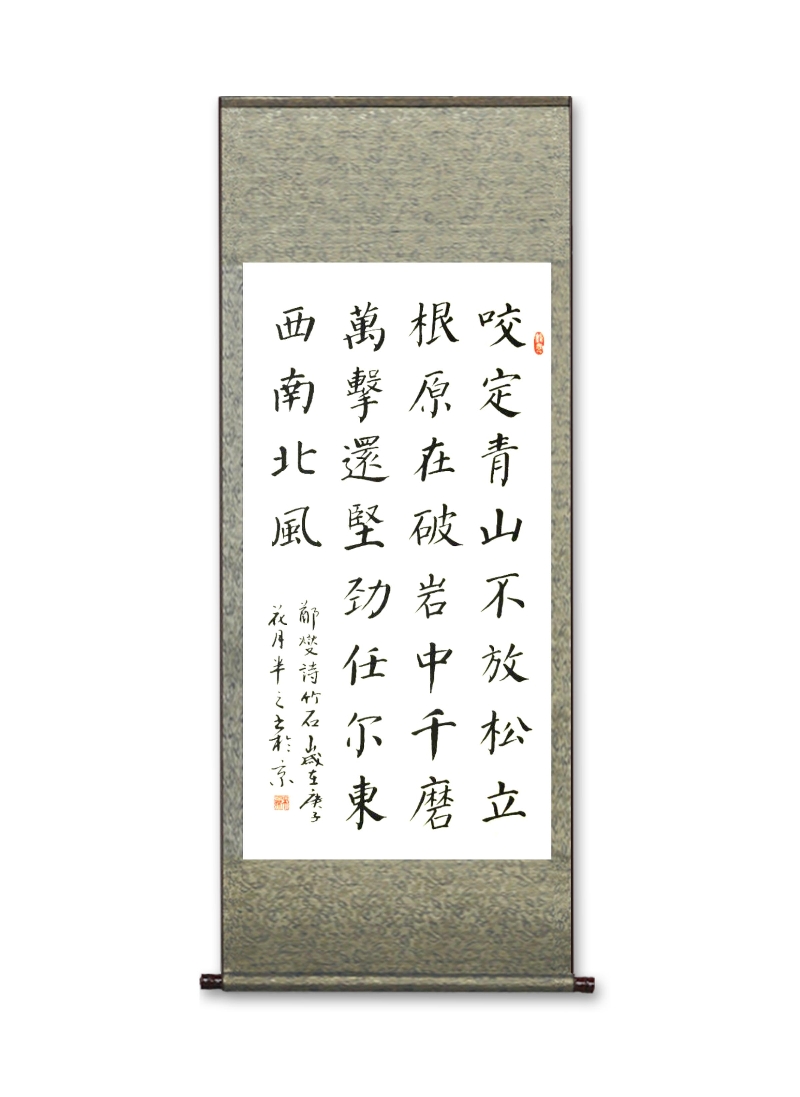 咬定青山不放松立
根原在破岩中千磨
萬擊還堅劲任尔東
西南北風
鄭燮詩竹石歲在庚子
花月半之書於京